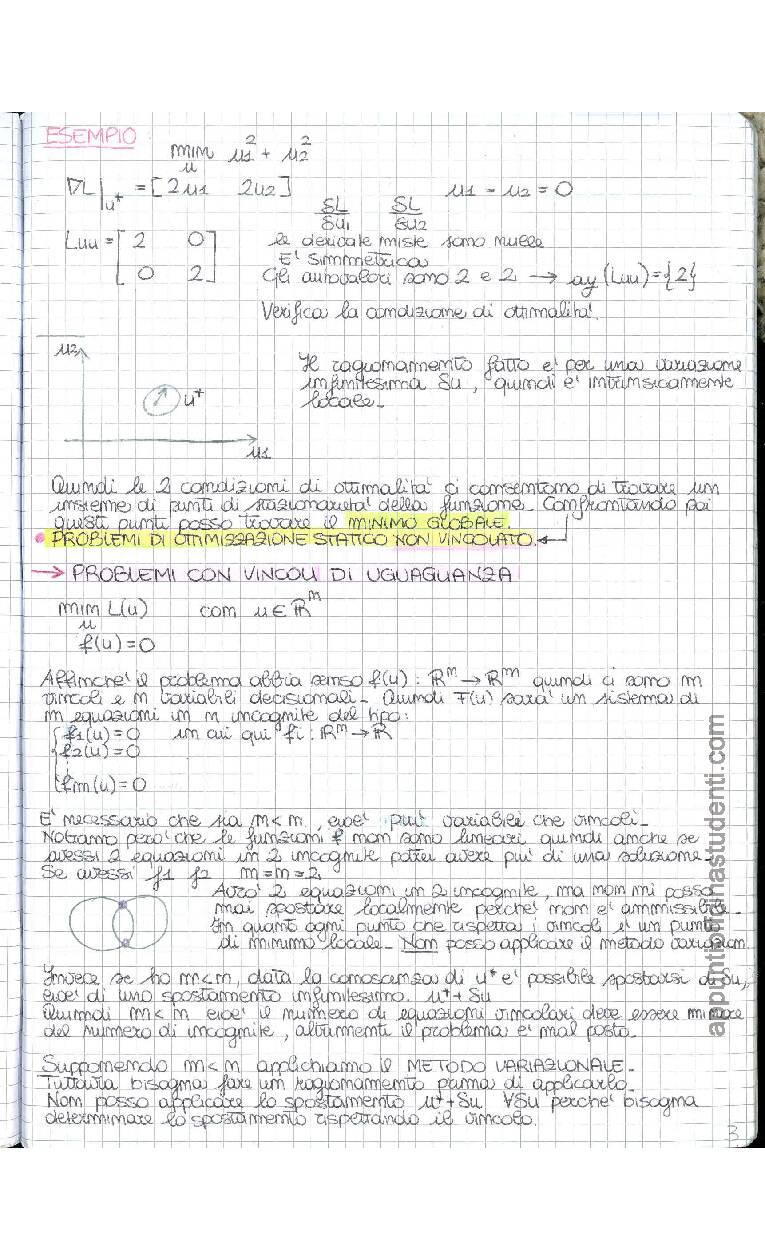 ESEMPIO
min u1² + u2²
u
∇L|u* = [2u1 2u2] u1 = u2 = 0
δL/δu1 δL/δu2
Luu = [2 0; 0 2] le derivate miste sono nulle
E' simmetrica
Gli autovalori sono 2 e 2 → (Luu) = {2}
Verifica la condizione di ottimalita'.
u2
Il ragionamento fatto e' per una variazione
infinitesima δu, quindi e' intrinsicamente
u*
locale.
u1
Quindi le 2 condizioni di ottimalita' ci consentono di trovare un
insieme di punti di stazionarieta' della funzione. Confrontando poi
questi punti posso trovare il MINIMO GLOBALE.
• PROBLEMI DI OTTIMIZZAZIONE STATICO NON VINCOLATO. ←
→ PROBLEMI CON VINCOLI DI UGUAGLIANZA
min L(u) con u∈ℝᵐ
u
f(u)=0
Affinche' il problema abbia senso f(u): ℝᵐ → ℝⁿ quindi ci sono n
vincoli e m variabili decisionali. Quindi F(u) sara' un sistema di
n equazioni in m incognite del tipo:
f1(u)=0 in cui qui fi: ℝᵐ → ℝ
f2(u)=0
fn(u)=0
E' necessario che sia n<m, cioe' piu' variabili che vincoli.
Notiamo pero' che le funzioni f non sono lineari quindi anche se
avessi 2 equazioni in 2 incognite potrei avere piu' di una soluzione.
Se avessi f1 f2 n=m=2
Avro' 2 equazioni in 2 incognite, ma non mi posso
mai spostare localmente perche' non e' ammissibile.
In quanto ogni punto che rispetta i vincoli e' un punto
di minimo locale. Non posso applicare il metodo variazion.
Invece se ho n<m, data la conoscenza di u* e' possibile spostarsi di δu,
cioe' di uno spostamento infinitesimo. u*+δu
Quindi n<m cioe' il numero di equazioni vincolari deve essere minore
del numero di incognite, altrimenti il problema e' mal posto.
Supponendo n<m applichiamo il METODO VARIAZIONALE.
Tuttavia bisogna fare un ragionamento prima di applicarlo.
Non posso applicare lo spostamento u*+δu ∀δu perche' bisogna
determinare lo spostamento rispettando il vincolo.
3
appuntiofficinastudenti.com